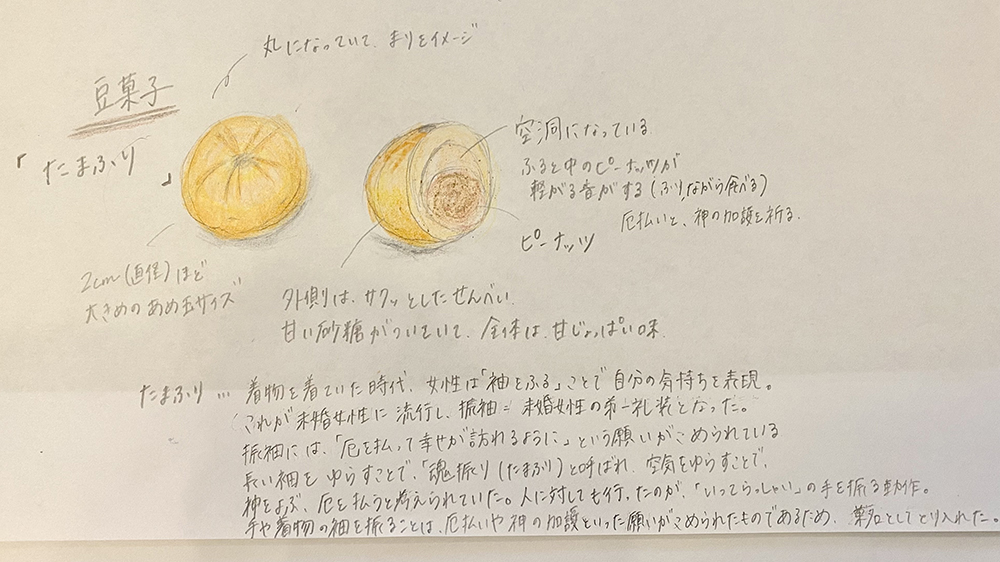 丸になっていて、まりをイメージ
豆菓子
「たまふり」
空洞になっている
ふると中のピーナッツが
軽がる音がする(ふりながら食べる)
厄払いと、神の加護を祈る。
ピーナッツ
2cm(直径)ほど
大きめのあめ玉サイズ
外側は、サクッとしたせんべい。
甘い砂糖がついていて、全体は、甘じょっぱい味
たまふり … 着物を着ていた時代、女性は「袖をふる」ことで自分の気持ちを表現。
これが未婚女性に流行し、振袖=未婚女性の第一礼装となった。
振袖には、「厄を払って幸せが訪れるように」という願いがこめられている
長い袖をゆらすことで、「魂振り(たまふり)と呼ばれ、空気をゆらすことで、
神をよぶ、厄を払うと考えられていた。人に対しても行ったのが、「いってらっしゃい」の手を振る動作。
手や着物の袖を振ることは、厄払いや神の加護といった願いがこめられたものであるため、菓名としてとり入れた。